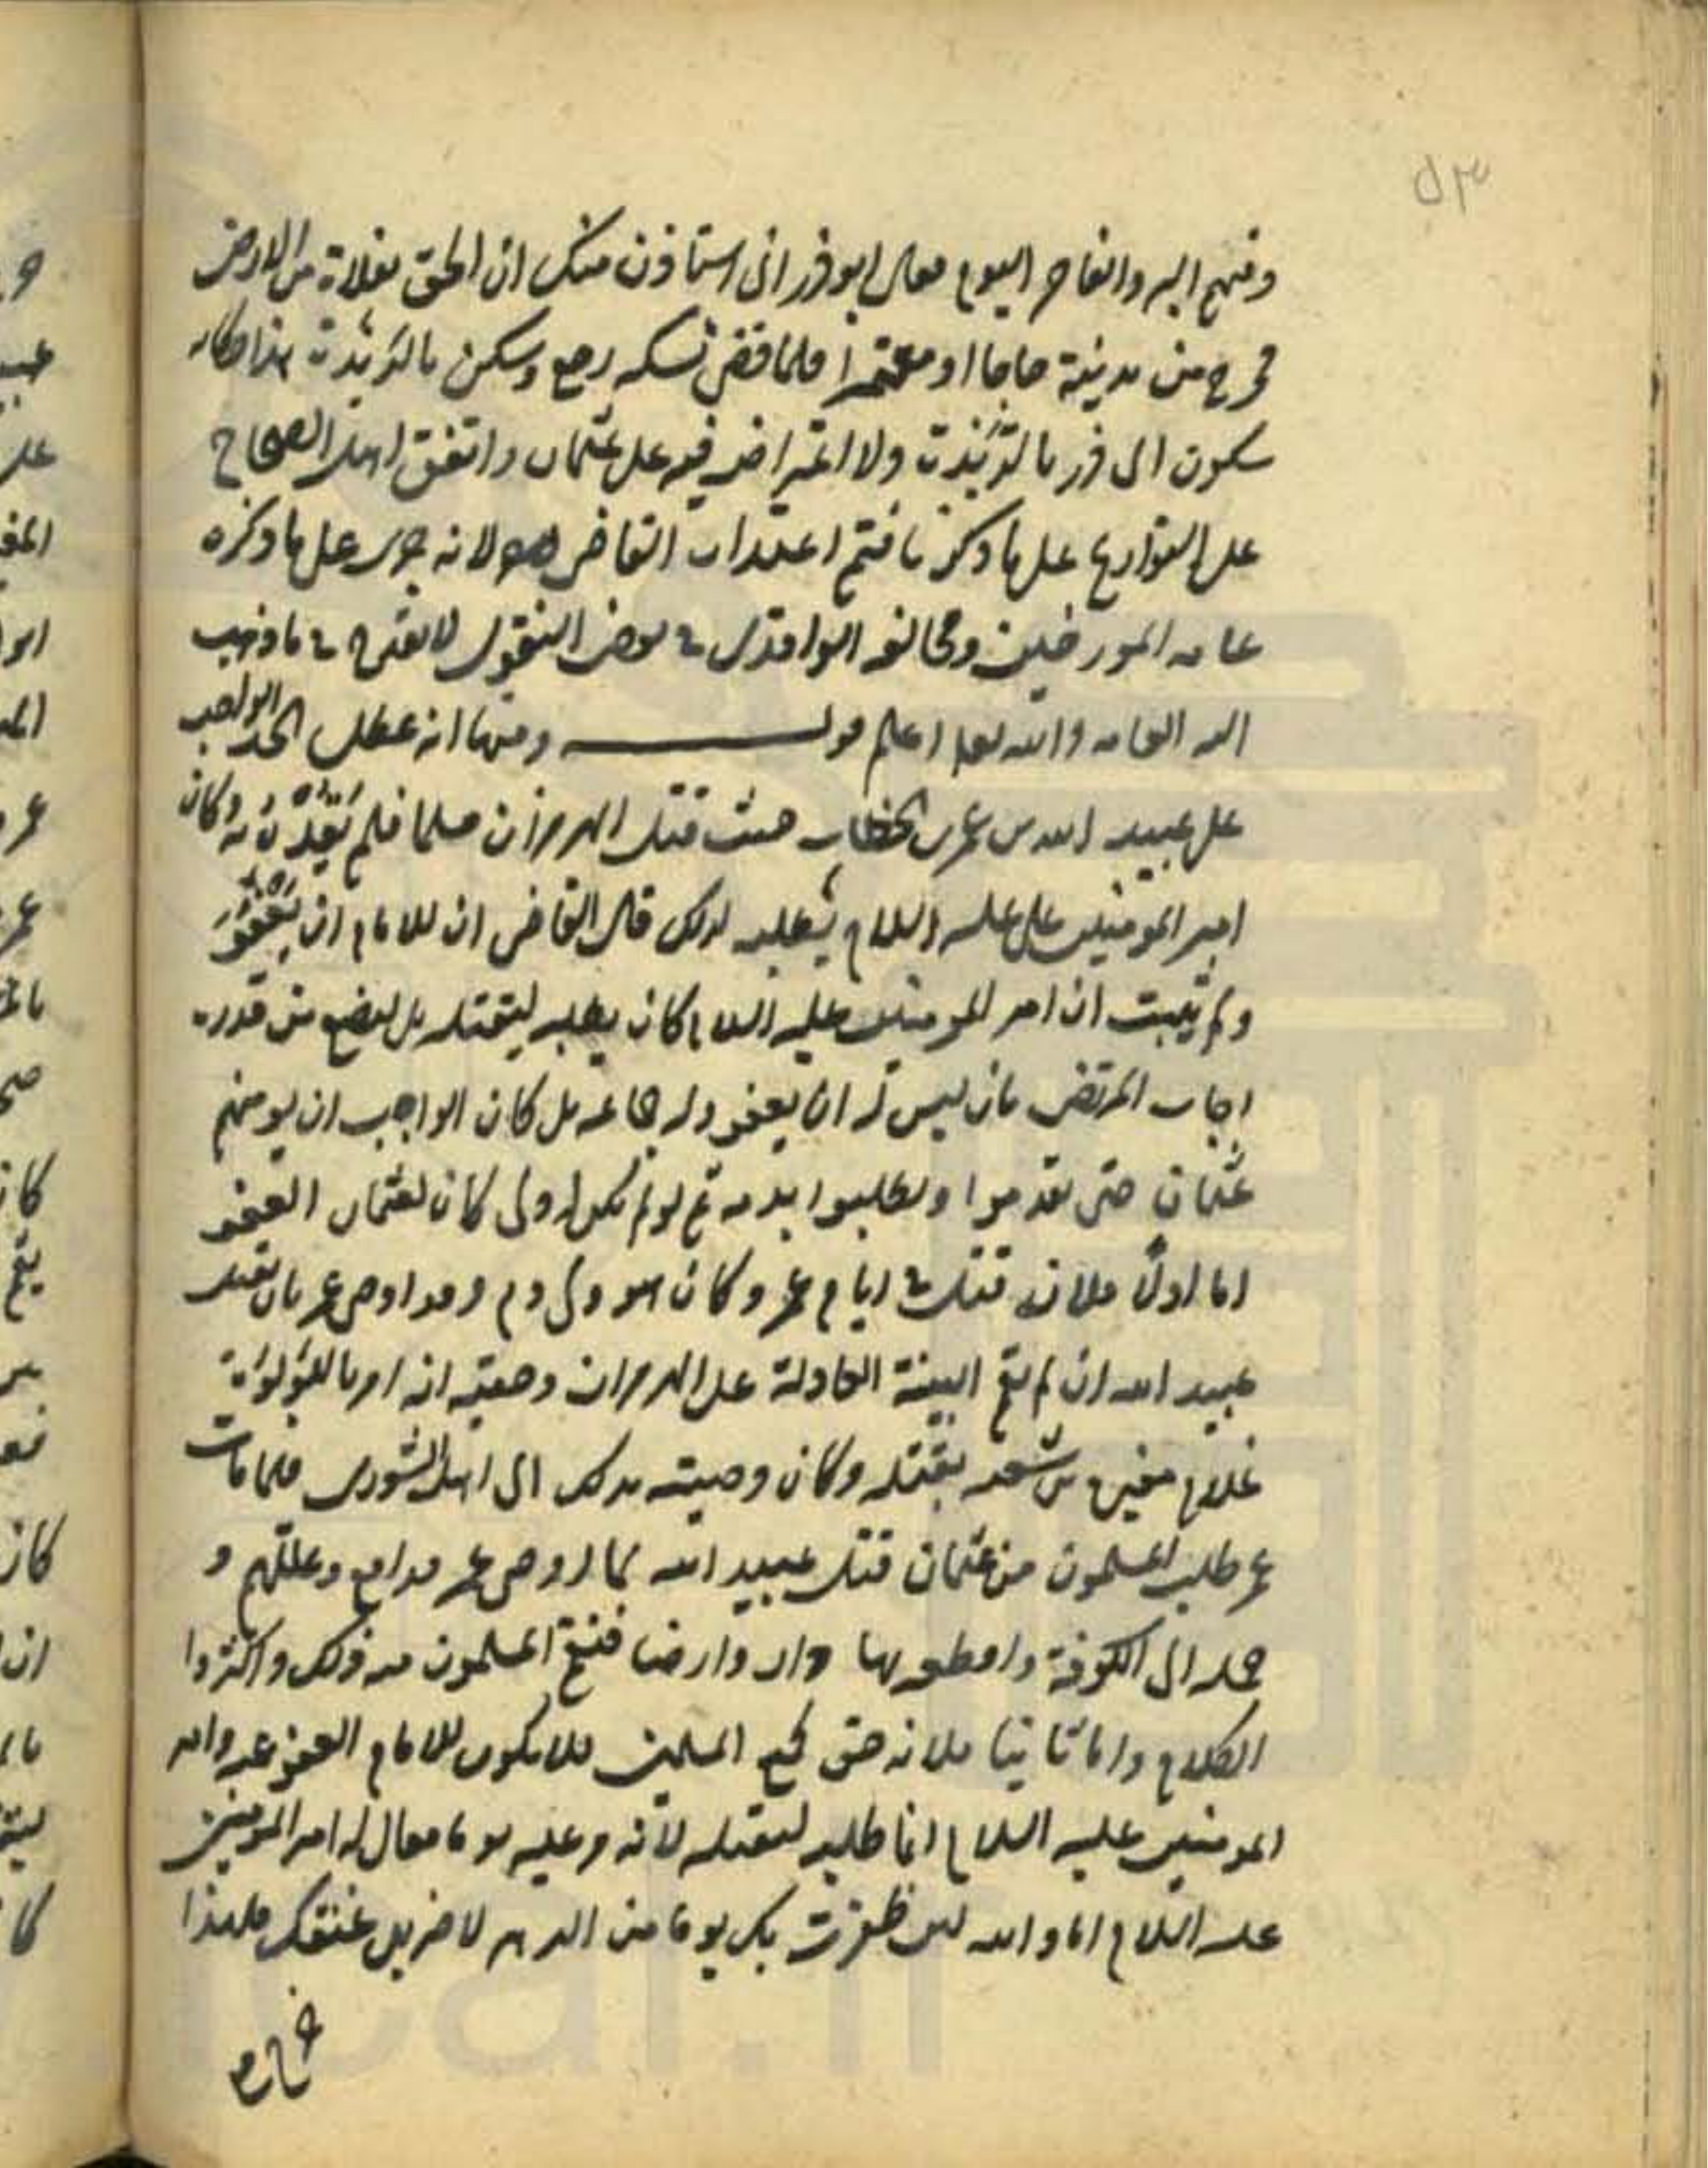 ٥٣
وفيهم البر والفاجر اليوم فقال ابوذر انى استاذن منك ان الحق بفلاة من الارض
فخرج من مدينة حاجا او معتمرا فلما قضى نسكه رجع وسكن بالربذة هذا حكاية
سكون ابى ذر بالربذة ولا اعتراض فيه على عثمان واتفق اهل الصحاح
على التواريخ على ما ذكرنا فتم اعتذار القاضى لانه جرى على ما ذكره
عامه المورخين ومخالفه الواقدى فى بعض النقول لا يقدح فى ما ذهب
اليه العامه والله تعالى اعلم قوله ومنها انه عطل الحد الواجب
على عبيد الله بن عمر بن الخطاب حيث قتل الهرمزان مسلما فلم يقده به وكان
امير المومنين على عليه السلام يطلبه لذلك قال القاضى ان للامام ان يعفو
ولم يثبت ان امير المومنين عليه السلام كان يطلبه ليقتله بل ليضع من قدره
اجاب المرتضى بان ليس له ان يعفو وله جماعه بل كان الواجب ان يومنهم
عثمان حتى يقدموا ويطلبوا بدمه ثم لو لم يكن له ولى كان لعثمان العفو
اما اولا فلانه قتل فى ايام عمر وكان هو ولى دم وقد اوصى عمر بان يقتل
عبيد الله ان لم تقم البينة العادلة على الهرمزان وجفينه انه امر بالؤلؤة
غلام مغيره بن شعبه بقتله وكان وصيته بذلك الى اهل الشورى فلما مات
عمر طلب المسلمون من عثمان قتل عبيد الله بما اوصى عمر فدافع وعللهم و
حمله الى الكوفة واقطعه بها دارا وارضا فنقم المسلمون منه ذلك واكثروا
الكلام واما ثانيا فلانه حق لجميع المسلمين فلا يكون للامام العفو عنه وامير
المومنين عليه السلام انما طلبه ليقتله لانه مر عليه يوما فقال له امير المومنين
عليه السلام اما والله لئن ظفرت بك يوما من الدهر لاضربن عنقك فلهذا